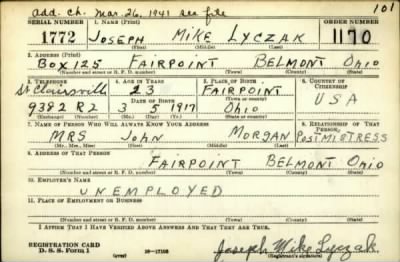 add. ch. Mar. 26, 1941 see file
101
SERIAL NUMBER 1. NAME (Print) ORDER NUMBER
1772 JOSEPH MIKE LYCZAK 1170
(First) (Middle) (Last)
2. ADDRESS (Print)
BOX 125 FAIRPOINT BELMONT OHIO
(Number and street or R. F. D. number) (Town) (County) (State)
3. TELEPHONE 4. AGE IN YEARS 5. PLACE OF BIRTH 6. COUNTRY OF CITIZENSHIP
St Clairsville 23 FAIRPOINT
9382 R2 DATE OF BIRTH (Town or county) USA
3 5 1917 OHIO
(Mo.) (Day) (Yr.) (State or country)
7. NAME OF PERSON WHO WILL ALWAYS KNOW YOUR ADDRESS 8. RELATIONSHIP OF THAT PERSON
MRS JOHN MORGAN POSTMISTRESS
(Mr., Mrs., Miss) (First) (Middle) (Last)
9. ADDRESS OF THAT PERSON
FAIRPOINT BELMONT OHIO
(Number and street or R. F. D. number) (Town) (County) (State)
10. EMPLOYER'S NAME
UNEMPLOYED
11. PLACE OF EMPLOYMENT OR BUSINESS
(Number and street or R. F. D. number) (Town) (County) (State)
I AFFIRM THAT I HAVE VERIFIED ABOVE ANSWERS AND THAT THEY ARE TRUE.
REGISTRATION CARD
D. S. S. Form 1 (over) 16-17105 Joseph Mike Lyczak
(Registrant's signature)